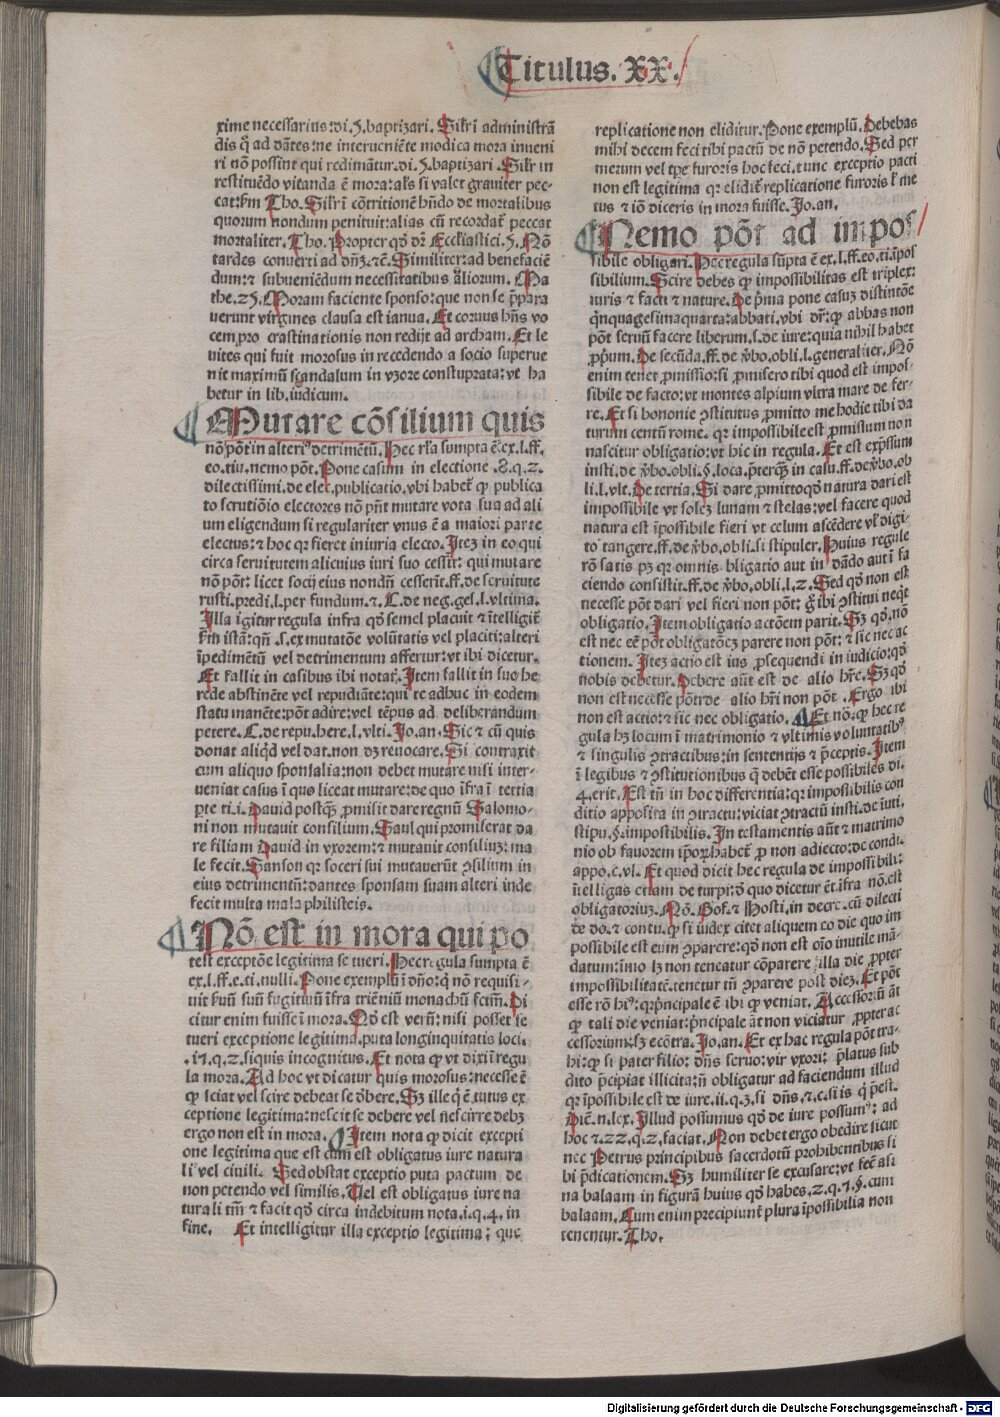 Titulus. XX.
xime necessarius: di. 5. baptizari. Silr̄ ī administrā
dis q̄ ad dātes: ne interueniēte modica mora inueni
ri nō possint qui redimātur. di. 5. baptizari. Silr̄ in
restituēdo vitanda ē mora: als̄ si valet grauiter pec-
cat: ẜm Tho. Silr̄ ī cōtritionē hn̄do de mortalibus
quorum nondum penituit: alias cū recordat̄ peccat
mortaliter. Tho. Propter qd̄ dr̄ Ecclīastici. 5. Nō
tardes conuerti ad dn̄ꝫ. ⁊c̄. Similiter: ad benefaciē
dum: ⁊ subueniēdum necessitatibus aliorum. Ma
the. 25. Moram faciente sponso: que non se p̄para
uerunt virgines clausa est ianua. Et coruus hn̄s vo
cem pro crastinationis non redijt ad archam. Et le
uites qui fuit morosus in recedendo a socio superue
nit maximū scandalum in vxore constuprata: vt ha
betur in lib. iudicum.
Mutare cōsilium quis
nō pōt in alteri⁹ detrimētū. Hec rl̄a sumpta ē: ex. l. ff.
eo. tiu. nemo pōt. Pone casum in electione. 8. q. 2.
dilectissimi. de elec. publicatio. vbi habet̄ ꝙ publica
to scrutiōio electores nō pn̄t mutare vota sua ad ali
um eligendum si regulariter vnus ē a maiori parte
electus: ⁊ hoc qr̄ fieret iniuria electo. Iteꝫ in eo qui
circa seruitutem alicuius iuri suo cessit: qui mutare
nō pōt: licet socij eius nondū cesserīt. ff. de seruitute
rusti. predi. l. per fundum. ⁊. C. de neg. ges. l. vltima.
Illa igitur regula infra qd̄ semel placuit ⁊ ītelligit̄
ẜm istā: qn̄ .s. ex mutatōe volūtatis vel placiti: alteri
īpedimētū vel detrimentum affertur: vt ibi dicetur.
Et fallit in casibus ibi notat̄. Item fallit in suo he
rede abstinēte vel repudiāte: qui te adhuc in eodem
statu manēte: pōt adire: vel tēpus ad deliberandum
petere. C. de repu. here. l. vlti. Jo. an. Sic ⁊ cū quis
donat aliqd̄ vel dat. non dꝫ reuocare. Si contraxit
cum aliquo sponsalia: non debet mutare nisi inter-
ueniat casus ī quo liceat mutare: de quo īfra ī tertia
ꝑte ti. i. Dauid postꝙ̄ ꝓmisit dare regnū Salomo-
ni non mutauit consilium. Saul qui promiserat da
re filiam Dauid in vxorem: ⁊ mutauit consiliuꝫ: ma
le fecit. Sanson qr̄ soceri sui mutauerūt ꝯsilium in
eius detrimentū: dantes sponsam suam alteri inde
fecit multa mala philisteis.
Nō est in mora qui po
test exceptōe legitima se tueri. Hec regula sumpta ē
ex. l. ff. e. ti. nulli. Pone exemplū ī dn̄o: q̄ nō requisi-
uit ẜuū suū fugitiuū īfra triēniū monachū fctm̄. Di
citur enim fuisse ī mora. Nō est verū: nisi posset se
tueri exceptione legitima. puta longinquitatis loci.
.17. q. 2. si quis incognitus. Et nota ꝙ vt dixi ī regu
la mora. Ad hoc vt dicatur quis morosus: necesse ē
ꝙ sciat vel scire debeat se ō bere. Sꝫ ille q̄ ē tutus ex
ceptione legitima: nescit se debere vel nescirre debꝫ
ergo non est in mora. Item nota ꝙ dicit excepti
one legitima que est cum est obligatus iure natura
li vel ciuili. Sed obstat exceptio puta pactum de
non petendo vel similis. Uel est obligatus iure na
turali tm̄ ⁊ facit qd̄ circa indebitum nota. i. q. 4. in
fine. Et intelligitur illa exceptio legitima; que
replicatione non eliditur. Pone exemplū. Debebas
mihi decem feci tibi pactū de nō petendo. Sed per
metum vel tp̄e furoris hoc feci. tunc exceptio pacti
non est legitima qr̄ elidit̄ replicatione furoris l̄ me
tus ⁊ iō diceris in mora fuisse. Jo. an.
Nemo pōt ad impos
sibile obligari. Hec regula sūpta ē ex. l. ff. eo. ti. īpos
sibilium. Scire debes ꝙ impossibilitas est triplex:
iuris ⁊ facti ⁊ nature. De p̄ma pone casuꝫ distintōe
q̄nquagesimaquarta: abbati. vbi dr̄: ꝙ abbas non
pōt seruū facere liberum. s. de iure: quia nihil habet
ꝓp̄um. De secūda. ff. de v̄bo. obli. l. generaliter. Nō
enim tenet ꝓmissio: si ꝓmisero tibi quod est impos-
sibile de facto: vt montes alpium vltra mare de fer-
re. Et si bononie ꝯstitutus ꝓmitto me hodie tibi da
turum centū rome. qr̄ impossibile est ꝓmissum non
nascitur obligatio: vt hic in regula. Et est exp̄ssum
insti. de v̄bo. obli. §. loca. p̄terq̄ꝫ in casu. ff. de v̄bo. ob
li. l. vlt. De tertia. Si dare ꝓmitto qd̄ natura dari est
impossibile vt soleꝫ lunam ⁊ stelas: vel facere quod
natura est īpossibile fieri vt celum ascēdere vl̄ digi-
to tangere. ff. de v̄bo. obli. si stipuler. Huius regule
rō satis pꝫ qr̄ omnis bligatio aut in dādo aut ī fa
ciendo consistit. ff. de v̄bo. obli. l. 2. Sed qd̄ non est
necesse pōt dari vel fieri non pōt: ḡ ibi ꝯstitui neq̄t
obligatio. Item obligatio actōem parit. Sꝫ qd̄. nō
est nec eē pōt obligatōeꝫ parere non pōt: ⁊ sic nec ac
tionem. Iteꝫ actio est ius ꝓsequendi in iudicio: qd̄
nobis debetur. Debere aūt est de alio hr̄e. Sꝫ qd̄
non est necesse pōtr de alio hr̄i non pōt. Ergo ibi
non est actio: ⁊ sic nec obligatio. Et nō. ꝙ hec re
gula hꝫ locum ī matrimonio ⁊ vltimis voluntatib⁹
⁊ singulis ꝯtractibus: in sententijs ⁊ p̄ceptis. Item
ī legibus ⁊ ꝯstitutionibus q̄ debēt esse possibiles di.
4. erit. Est tn̄ in hoc differentia: qr̄ impossibilis con
ditio apposita in ꝯtractu: viciat ꝯtractū insti. de iuti.
stipu. §. impossibilis. In testamentis aūt ⁊ matrimo
nio ob fauorem ip̄oꝝ habet̄ ꝓ non adiecto: de condi.
appo. c. vl. Et quod dicit hec regula de impossibili:
ītelligas etiam de turpi: ō quo dicetur ēt īfra nō. est
obligatoriuꝫ. Nō. Gof. ⁊ Hosti. in decre. cū dilecti
de do. ⁊ contu. ꝙ si iudex citet aliquem eo die quo im
possibile est eum ꝯparere: qd̄ non est oīo inutile mā-
datum: īmo lꝫ non teneatur cōparere illa die ꝓpter
impossibilitatē. tenetur tn̄ ꝯparere post dieꝫ. Et pōt
esse rō hi⁹: qr̄ p̄ncipale ē ibi ꝙ veniat. Accessoriū āt
ꝙ tali die veniat: p̄ncipale āt non viciatur ꝓpter ac
cessorium: sꝫ ecōtra. Jo. an. Et ex hac regula pōt tra-
hi: ꝙ si pater filio: dn̄s seruo: vir vxori: p̄latus sub
dito p̄cipiat illicita: n̄ obligatur ad faciendum illud
qr̄ īpossibile est de iure. ii. q. 3. si dn̄s. ⁊ c. si is q̄ p̄est.
Pie. n. lex. Illud possumus qd̄ de iure possum⁹: ad
hoc ⁊. 22. q. 2. faciat. Non debet ergo obedire sicut
nec Petrus principibus sacerdotū prohibentibus si
bi p̄dicationem. Sꝫ humiliter se excusare: vt fec̄ asi
na balaam in figurā huius qd̄ habes. 2. q. 7. §. cum
balaam. Cum enim precipiunt̄ plura īpossibilia non
tenentur. Tho.
Digitalisierung gefördert durch die Deutsche Forschungsgemeinschaft - DFG